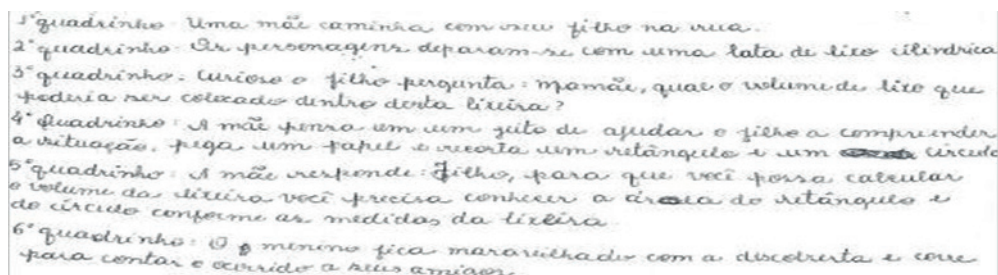 1º quadrinho: Uma mãe caminha com seu filho na rua.
2º quadrinho: Os personagens deparam-se com uma lata de lixo cilíndrica
3º quadrinho: Curioso o filho pergunta: Mamãe, qual o volume de lixo que
poderia ser colocado dentro desta lixeira?
4º Quadrinho: A mãe pensa em um jeito de ajudar o filho a compreender
a situação, pega um papel e recorta um retângulo e um círculo
5º quadrinho: A mãe responde: Filho, para que você possa calcular
o volume da lixeira você precisa conhecer a área do retângulo e
do círculo conforme as medidas da lixeira.
6º quadrinho: O menino fica maravilhado com a discoberta e corre
para contar o ocorrido a seus amigos.